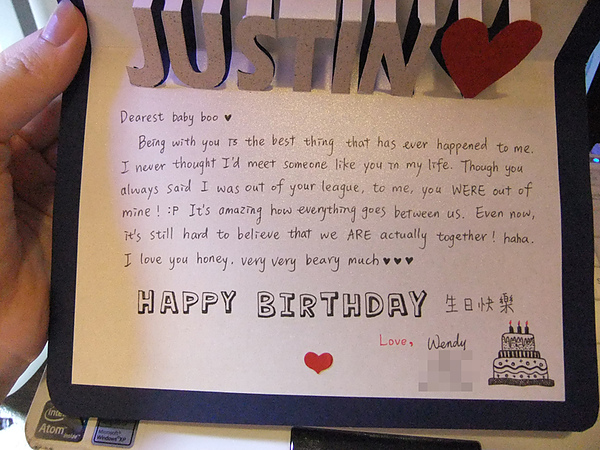 JUSTIN
Dearest baby boo ♥
Being with you is the best thing that has ever happened to me.
I never thought I'd meet someone like you in my life. Though you
always said I was out of your league, to me, you WERE out of
mine! :P It's amazing how everything goes between us. Even now,
it's still hard to believe that we ARE actually together! haha.
I love you honey. very very beary much ♥♥♥
HAPPY BIRTHDAY 生日快樂
Love, Wendy
intel
Atom inside
Microsoft
Windows XP